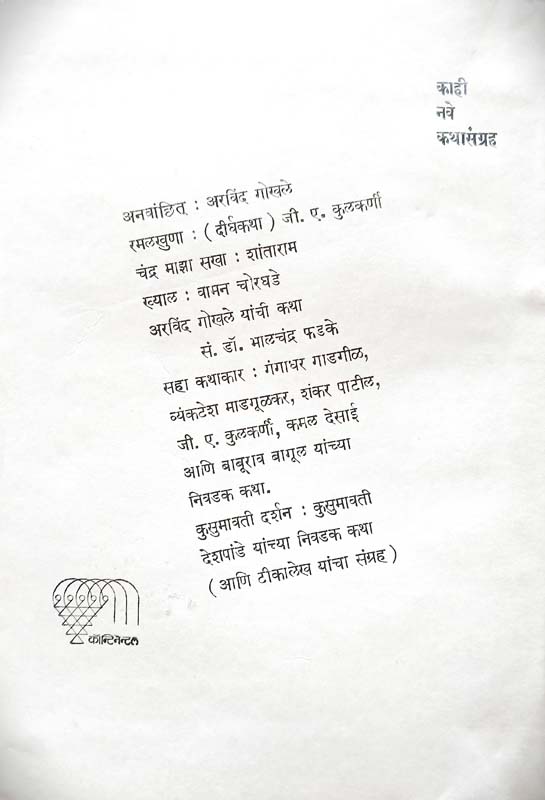 काही
नवे
कथासंग्रह
अनवांछित् : अरविंद गोखले
रमलखुणा : (दीर्घकथा) जी. ए. कुलकर्णी
चंद्र माझा सखा : शांताराम
ख्याल : वामन चोरघडे
अरविंद गोखले यांची कथा
सं. डॉ. भालचंद्र फडके
सहा कथाकार : गंगाधर गाडगीळ,
व्यंकटेश माडगूळकर, शंकर पाटील,
जी. ए. कुलकर्णी, कमल देसाई
आणि बाबूराव बागूल यांच्या
निवडक कथा.
कुसुमावती दर्शन : कुसुमावती
देशपांडे यांच्या निवडक कथा
(आणि टीकालेख यांचा संग्रह)
कॉन्टिनेन्टल